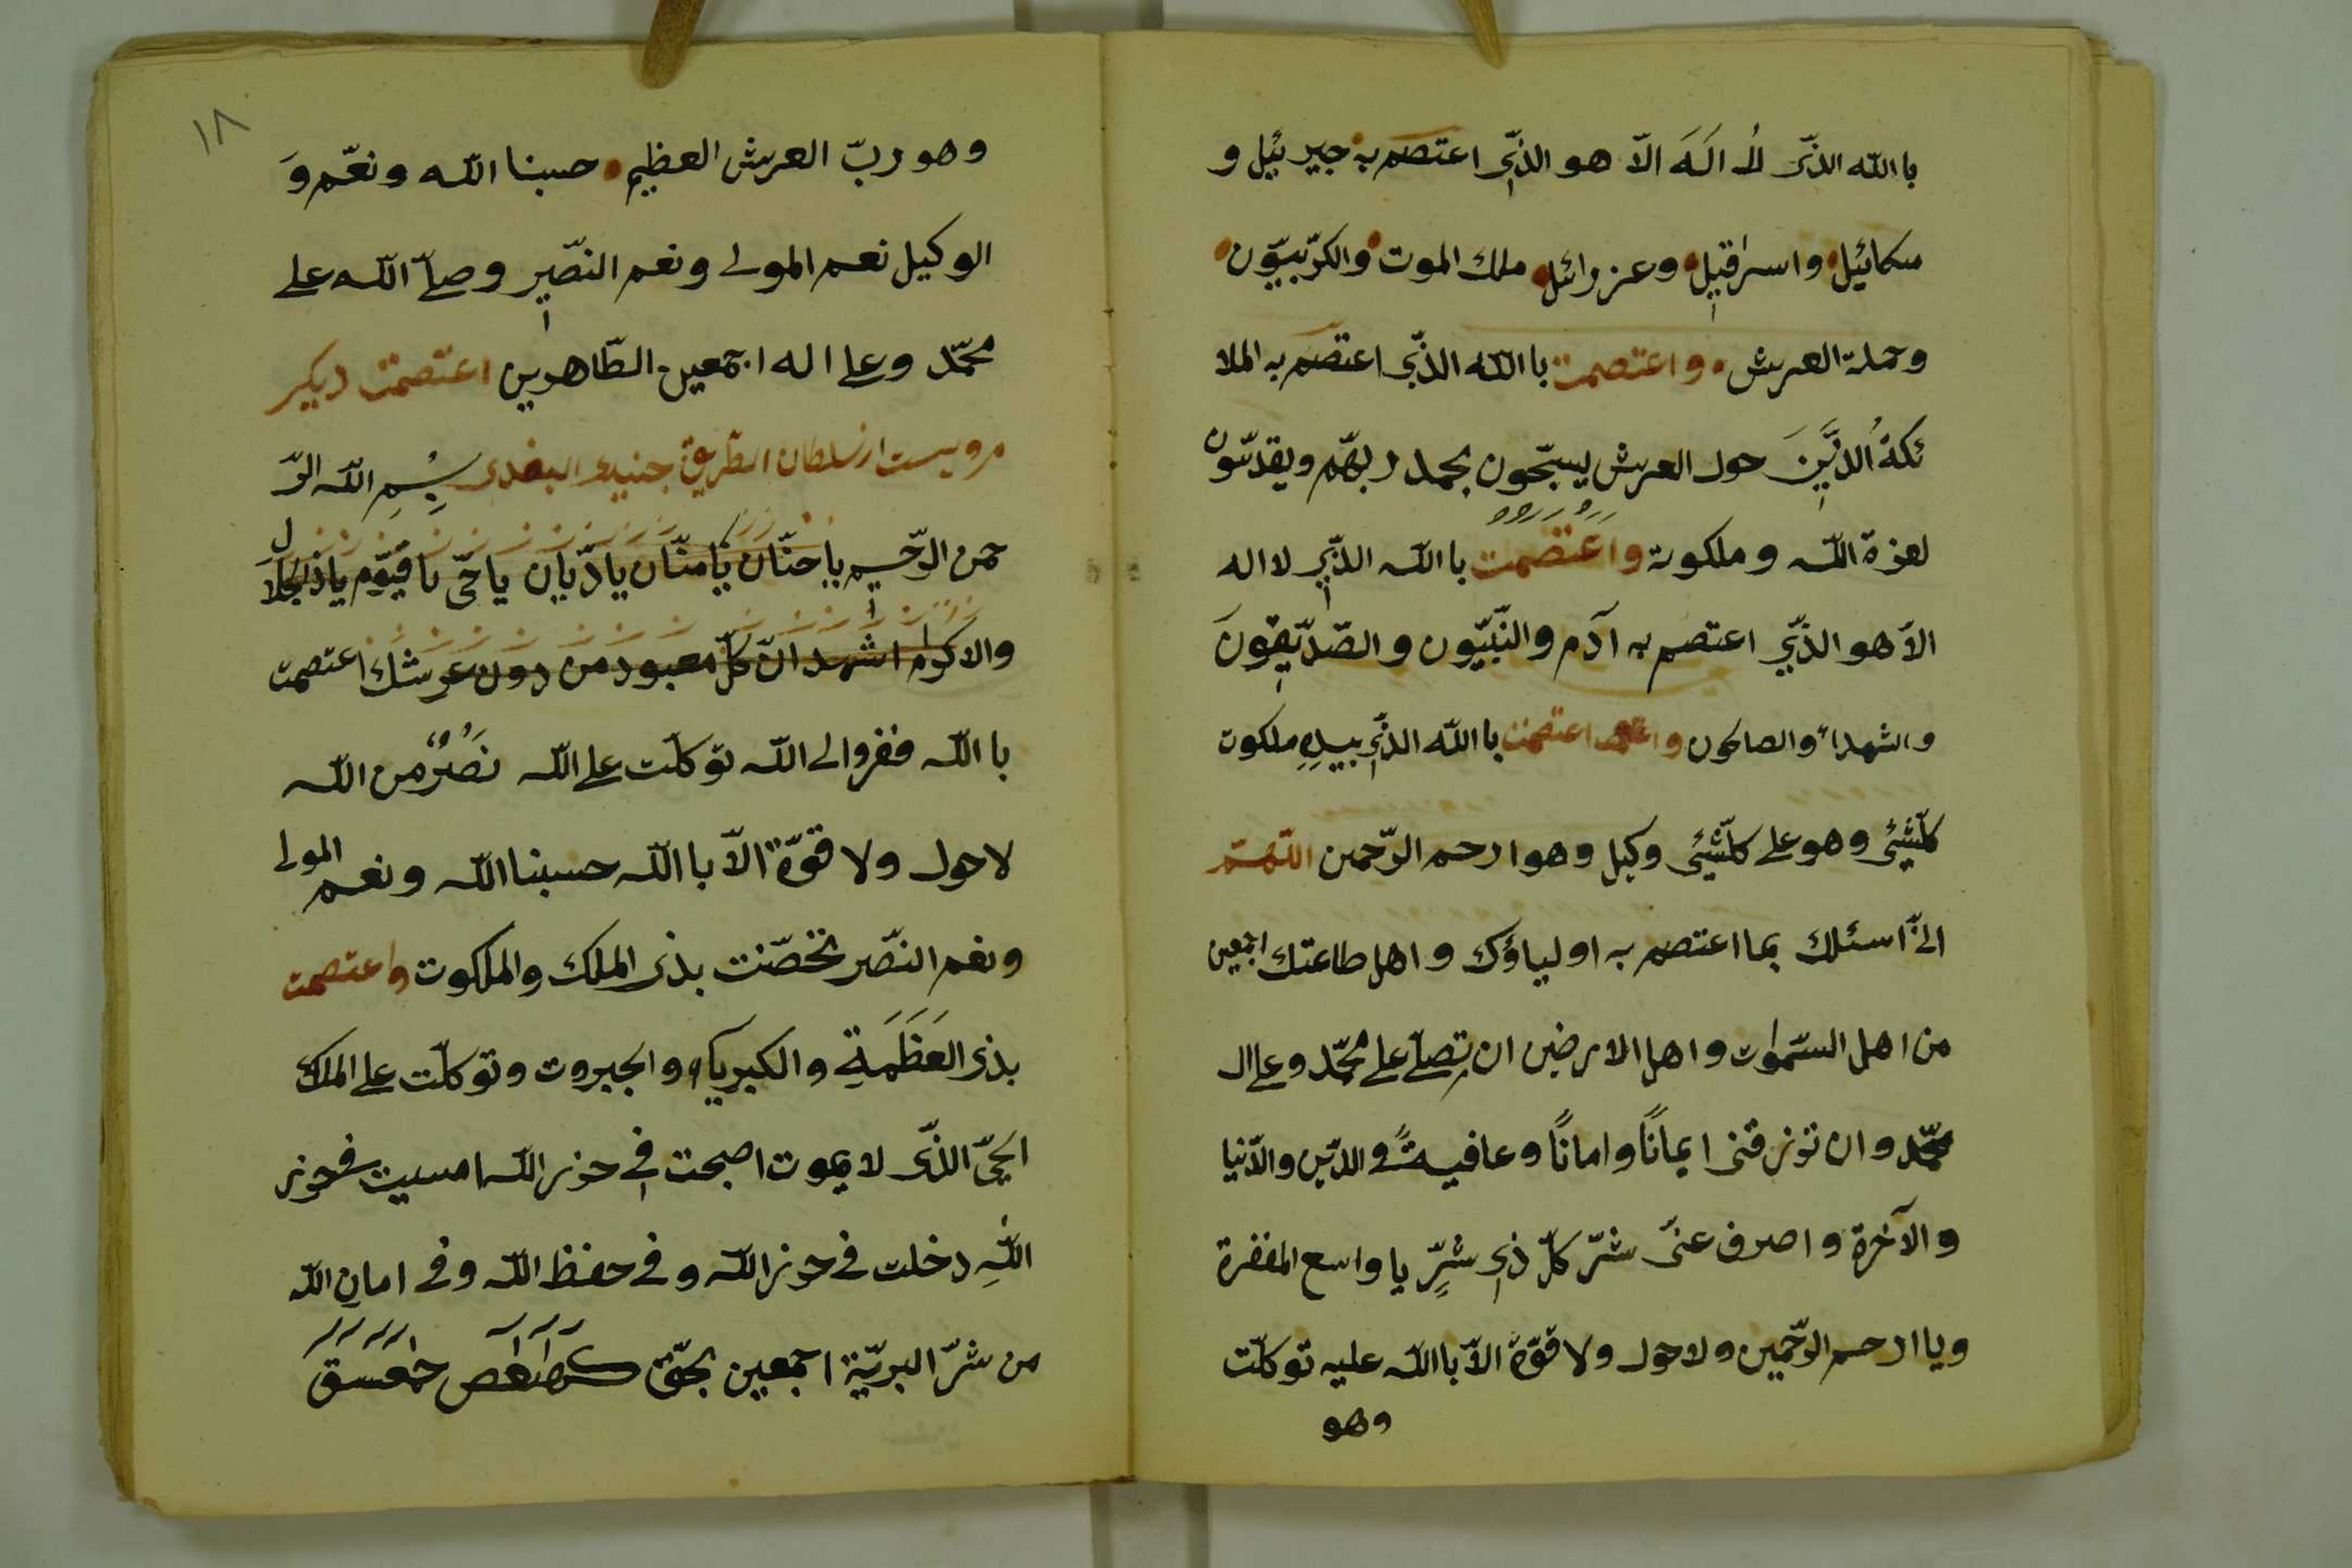 باالله الذّی لا اله الاّ هو الذّی اعتصم به جبرئیل و
میکائیل واسرافیل وعزرائل ملك الموت والکرّبیّون
وحملة العرش واعتصمت باالله الذّی اعتصم به الملا
ئکةُ الذّینَ حول العرش یسبّحون بحمد ربهّم ویقدّسون
لعزة الله وملکوته واعتصمت باالله الذّی لا اله
الاّ هو الذّی اعتصم به آدم والنّبیّون والصّدّیقونَ
والشهداء والصالحون اعتصمت باالله الذّی بیدِهِ ملکوت
کلّشیئی وهو علی کلّشیئی وکیل وهو ارحم الرّحمین اللّهمّ
انّی اسئلك بما اعتصم به اولیاؤك واهل طاعتك اجمعین
من اهل السّموات واهل الارضین ان تصلّی علی محمّد وعلی ال
محمّد وان تزرقنی ایمانًا وامانًا وعافیةً فی الدّین والدّنیا
والآخرة واصرف عنّی شرّ کلّ ذی شرٍّ یا واسع المغفرة
ویا ارحم الرّحمین ولا حول ولا قوّة الاّ باالله علیه توکلّت
وهو
١٨
وهو ربّ العرش العظیم حسبنا الله ونعم وَ
الوکیل نعم المولی ونعم النصّیر وصلّی الله علی
محمّد وعلی اله اجمعین الطّاهرین اعتصمت دیکر
مرویست از سلطان الطّریق جنید البغدی بِسْمِ الله الرّ
حمن الرّحیم یا حنّان یا منّان یا دیّان یا حیّ یا قیّوم یا ذالجلال
والاکرام اشهد انّ کلّ معبود من دون عرشك اعتصمت
باالله ففروا لی الله توکلّت علی الله نَصْرٌ من الله
لاحول ولا قوّة الاّ باالله حسبنا الله ونعم المولی
ونعم النصّر تخصّنت بذی الملك والملکوت واعتصمت
بذی العَظَمَةِ والکبریاء والجبروت وتوکلّت علی الملك
الحیّ الذّی لا یموت اصبحت فی حرز الله امسیت فی حرز
اللهِ دخلت فی حرز الله وفی حفظ الله وفی امان الله
من شرّ البریّة اجمعین بحقّ کهیعص حمعسق